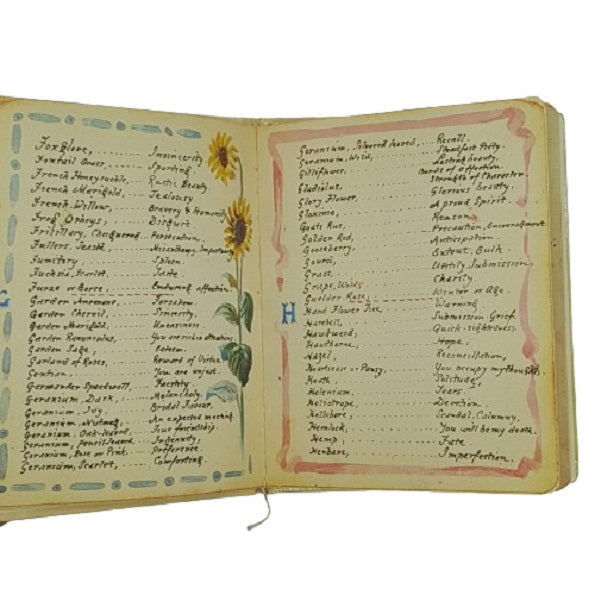 Foxglove, ........ Insincerity
Foxtail Grass, ........ Sporting.
French Honeysuckle, ..... Rustic Beauty
French Marigold, ...... Jealousy
French Willow, ..... Bravery & Humanity
Frog Ophrys, ...... Disgust
Fritillary, Chequered ... Persecution.
Fullers Teasle, ..... Misanthropy. Importunity
Fumitory ......... Spleen
Fuchsia, Scarlet, ..... Taste
Furze or Gorse, ..... Enduring affection.
G
Garden Anemone, ..... Forsaken.
Garden Chervil, ..... Sincerity.
Garden Marigold, ..... Uneasiness.
Garden Ranunculus, ... You are rich in attractions,
Garden Sage, ....... Esteem.
Garland of Roses, ..... Reward of Virtue
Gentian, ........ You are unjust.
Germander Speedwell, .... Facility
Geranium, Dark, ...... Melancholy.
Geranium, Ivy, ....... Bridal Favour,
Geranium, Nutmeg, ..... An expected meeting
Geranium, Oak-leaved, .... True friendship.
Geranium, Pencil-leaved, ... Ingenuity,
Geranium, Rose or Pink, .. Preference.
Geranium, Scarlet, ..... Comforting.
Geranium, Silver-leaved, .... Recall.
Geranium, Wild, ....... Steadfast Piety.
Gilloflower, ....... Lasting beauty.
Bonds of affection
Gladiolus, ........ Strength of Character.
Glory Flower, ....... Glorious beauty.
A proud Spirit.
Goats Rue, ........ Reason
Golden Rod, ..... Precaution, Encouragement
Gooseberry, ....... Anticipation
Gourd, ......... Extent, Bulk
Grass, ........ Utility, Submission
Grape, Wild, ....... Charity
Guelder Rose, ...... Winter or Age
H
Hand Flower Tree, ..... Warning
Harebell, ........ Submission, Grief.
Hawkweed, ....... Quick-sightedness.
Hawthorne, ....... Hope.
Hazel, ......... Reconciliation,
Heartsease or Pansy. .... You occupy my thoughts
Heath, ......... Solitude,
Helenium, ....... Tears.
Heliotrope, ....... Devotion.
Hellebore, ....... Scandal. Calumny.
Hemlock, ....... You will be my death.
Hemp, ........ Fate
Henbane, ....... Imperfection.